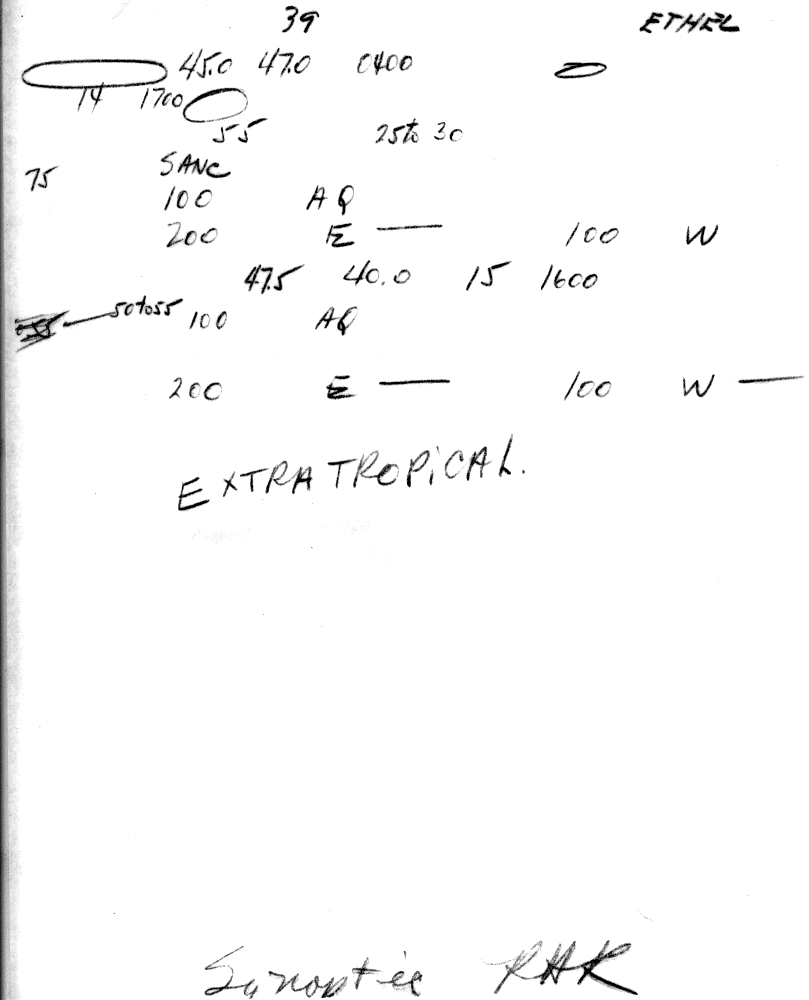 39 ETHEL
45.0 47.0 0400
14 1700
55 25 to 30
75 SANC
100 AQ
200 E — 100 W
47.5 40.0 15 1600
50 to 55 100 AQ
200 E — 100 W —
EXTRATROPICAL.
Synoptic RHK